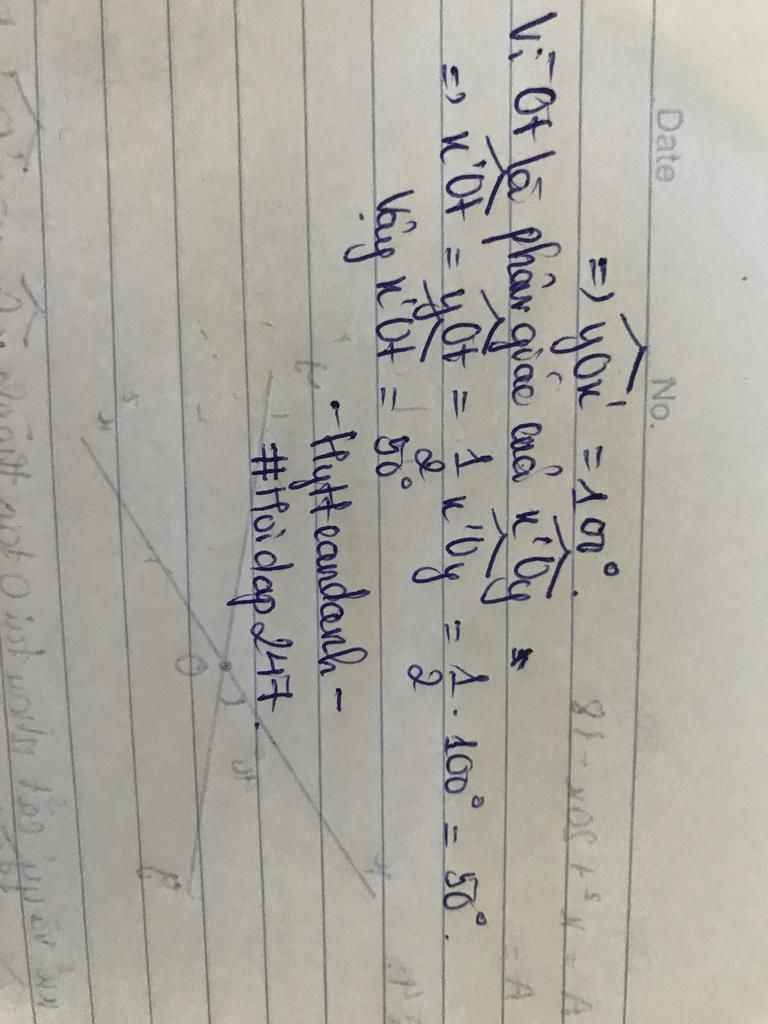 Date No.
=> yOx' = 100°.
Vì Ot là phân giác của x'Oy
=> x'Ot = yOt = 1/2 x'Oy = 1/2 . 100° = 50°.
Vậy x'Ot = 50°
- Hyttcandanh -
#Hoidap247.